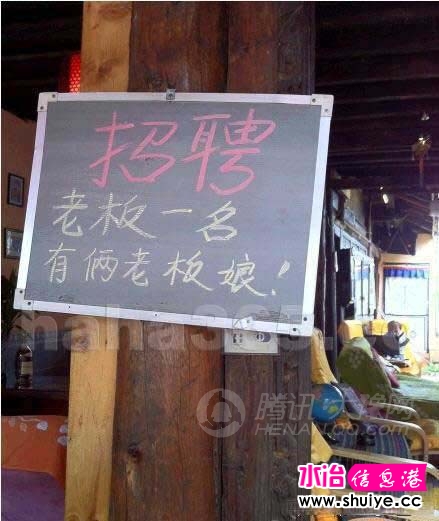 招聘
老板一名
有俩老板娘！
maha365.
腾讯 豫网
HENAN.QQ.COM
水冶信息港
www.shuiye.cc